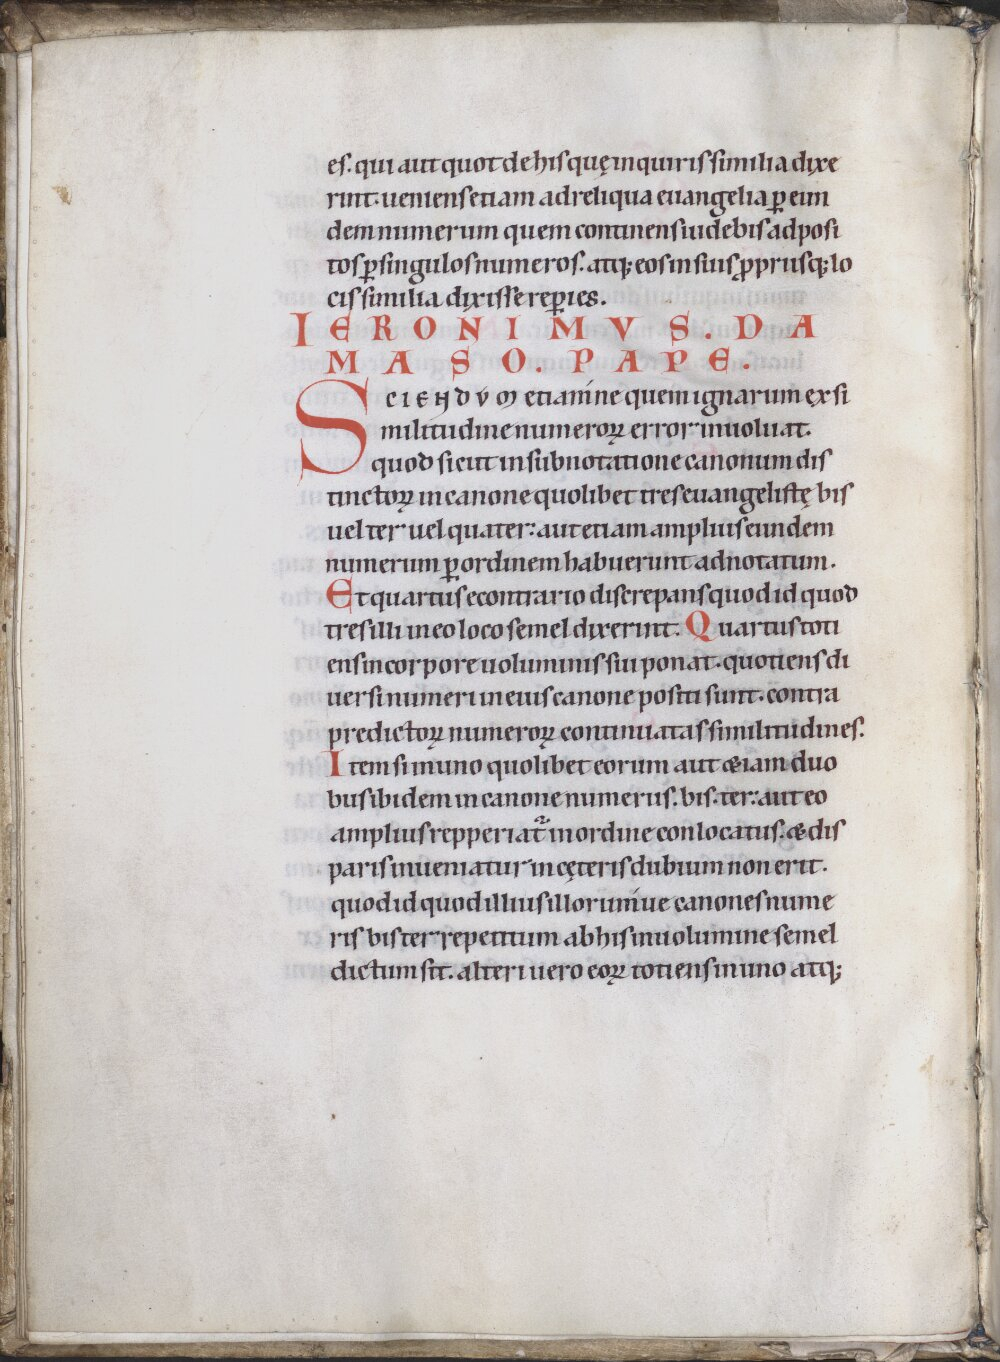 es. qui aut quot de his quę inquiris similia dixe
rint. ueniens etiam ad reliqua euangelia ꝑ eun
dem numerum quem continens uidebis adposi
tos ꝑ singulos numeros. atq; eos in suis ꝓpriis q; lo
cis similia dixisse reꝑies.
IERONIMVS. DA
MASO. PAPE.
SCIENDVM etiam ne quem ignarum ex si
militudine numeroꝝ error inuoluat.
quod sicut in subnotatione canonum dis
tinctoꝝ in canone quolibet tres euangelistę bis
uel ter uel quater: aut etiam amplius eundem
numerum ꝑ ordinem habuerunt adnotatum.
Et quartus econtrario discrepans quod id quod
tres illi in eo loco semel dixerint. Quartus toti
ens in corpore uoluminis sui ponat. quotiens di
uersi numeri in eius canone positi sunt. contra
predictoꝝ numeroꝝ continuatas similitudines.
Item si in uno quolibet eorum aut &iam duo
bus ibidem in canone numerus. bis. ter: aut eo
amplius repperiat᷑ in ordine conlocatus. & dis
paris inueniatur in cęteris dubium non erit.
quod id quod illius illorum ue canones nume
ris bis ter repetitum ab his in uolumine semel
dictum sit. alteri uero eoꝝ totiens in uno atq;